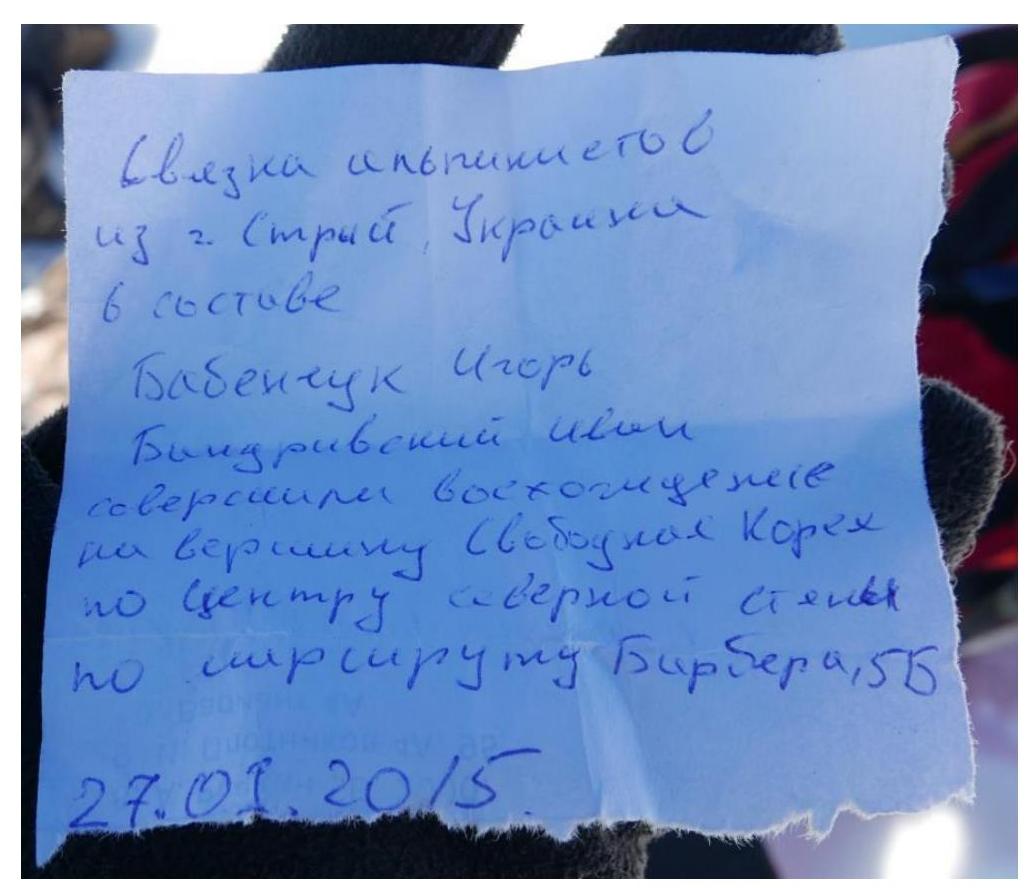 Связка альпинистов
из г. Стрый, Украина
в составе
Бабенчук Игорь
Бандривский Иван
совершили восхождение
на вершину Свободная Корея
по центру северной стены
по маршруту Барбера, 5Б
27.01.2015.